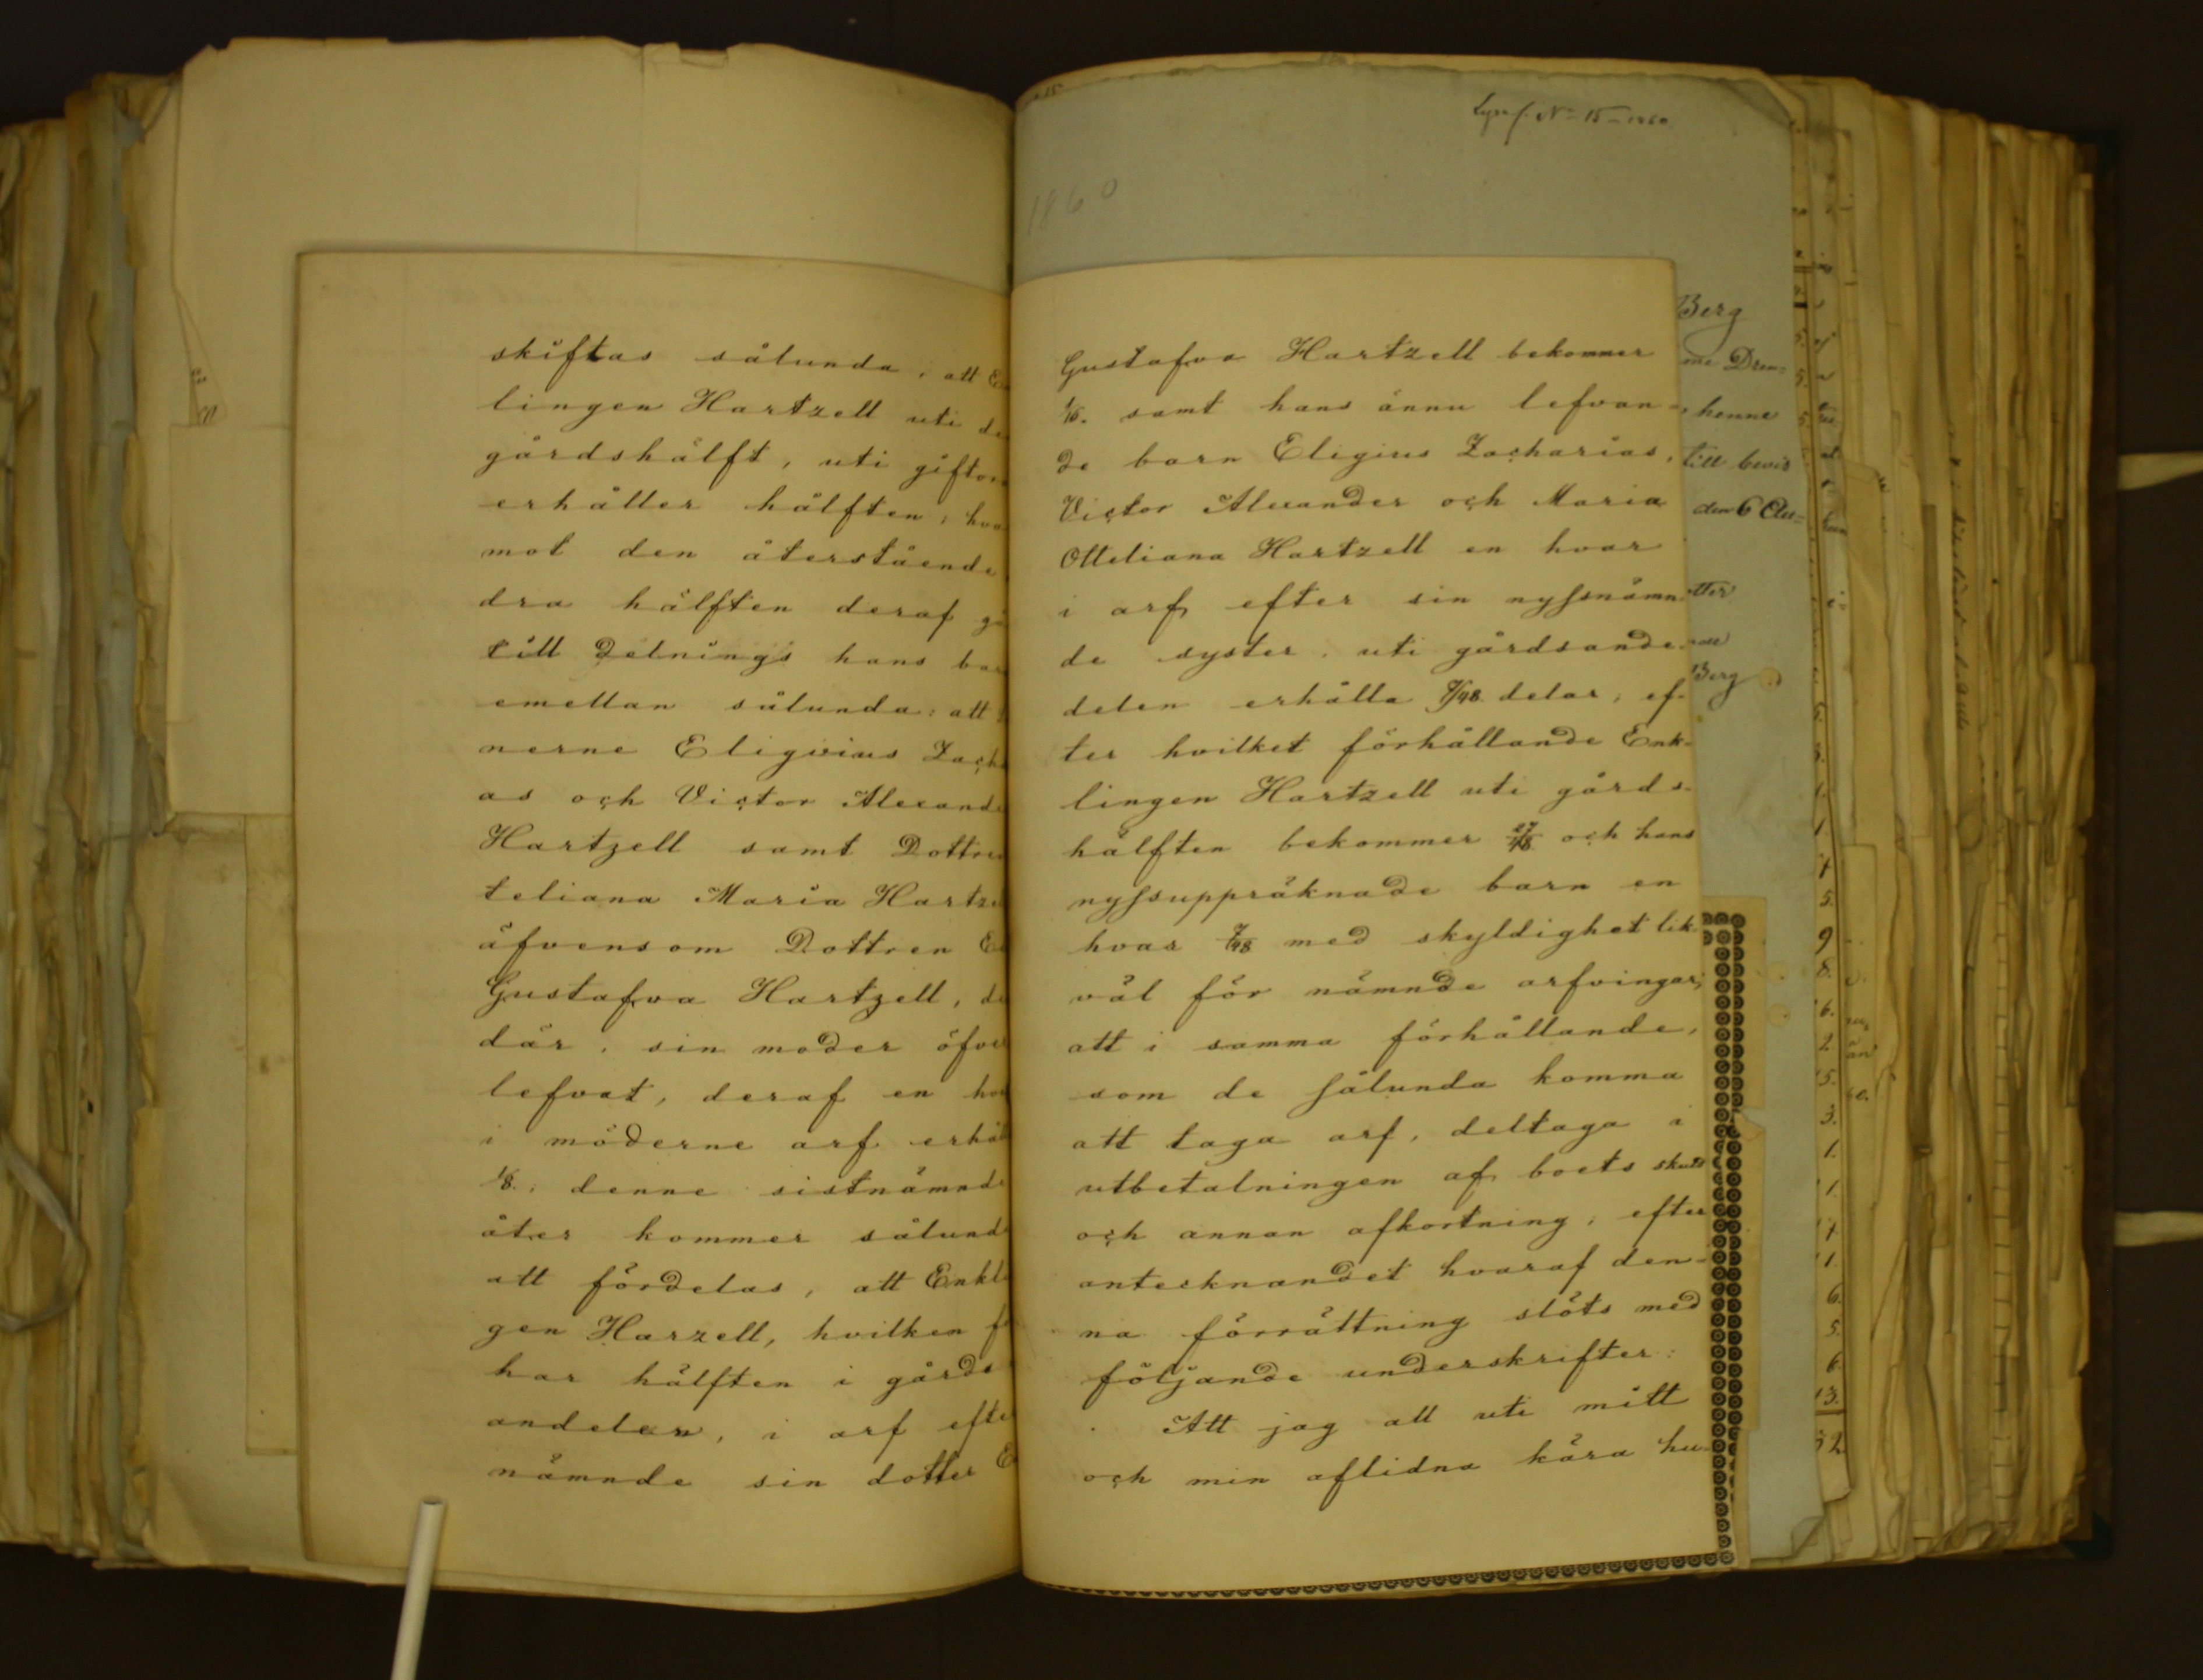 skiftas sålunda, att E
lingen Hartzell uti de
gårdshälft, uti giftor
erhåller hälften, hva
mot den återstående
dra hälften deraf gå
till delnings hans bar
emellan sålunda: att
nerne Eligivius Zach
as och Victor Alexand
Hartzell samt Dottre
teliana Maria Hartze
äfvensom Dottren E
Gustafva Hartzell, de
där, sin moder öfve
lefvat, deraf en hva
i möderne arf erhål
1/8. denne sistnämnd
åter kommer sålund
att fördelas, att Enkl
gen Harzell, hvilken f
har hälften i gårds
andelen, i arf efte
nämnde sin dotter E
Lysn f. No 15 - 1860
1860
Gustafva Hartzell bekommer
1/16. samt hans ännu lefvan-
de barn Eligius Zacharias,
Victor Alexander och Maria
Otteliana Hartzell en hvar
i arf efter sin nyssnämn
de syster, uti gårdsande-
delen erhålla 7/48 delar, ef-
ter hvilket förhållande Enk-
lingen Hartzell uti gårds-
hälften bekommer 27/48 och hans
nyssuppräknade barn en
hvar 7/48 med skyldighet lik-
väl för nämnde arfvingar,
att i samma förhållande,
som de sålunda komma
att taga arf, deltaga i
utbetalningen af boets skuld
och annan afkortning, efter
antecknandet hvaraf den-
na förrättning slöts med
följande underskrifter:
Att jag all uti mitt
och min aflidna kära hu-
Berg
me Dren=
henne
till bevis
den 6 
tter
Berg